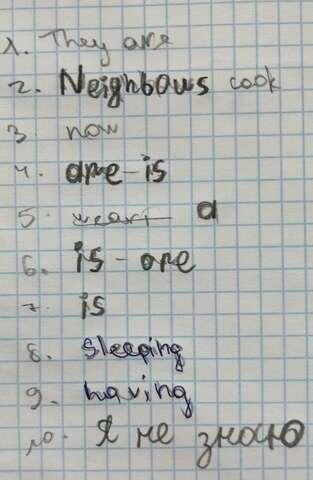 1. They are
2. Neighbous cook
3. now
4. are - is
5. a
6. is - are
7. is
8. sleeping
9. having
10. Я не знаю